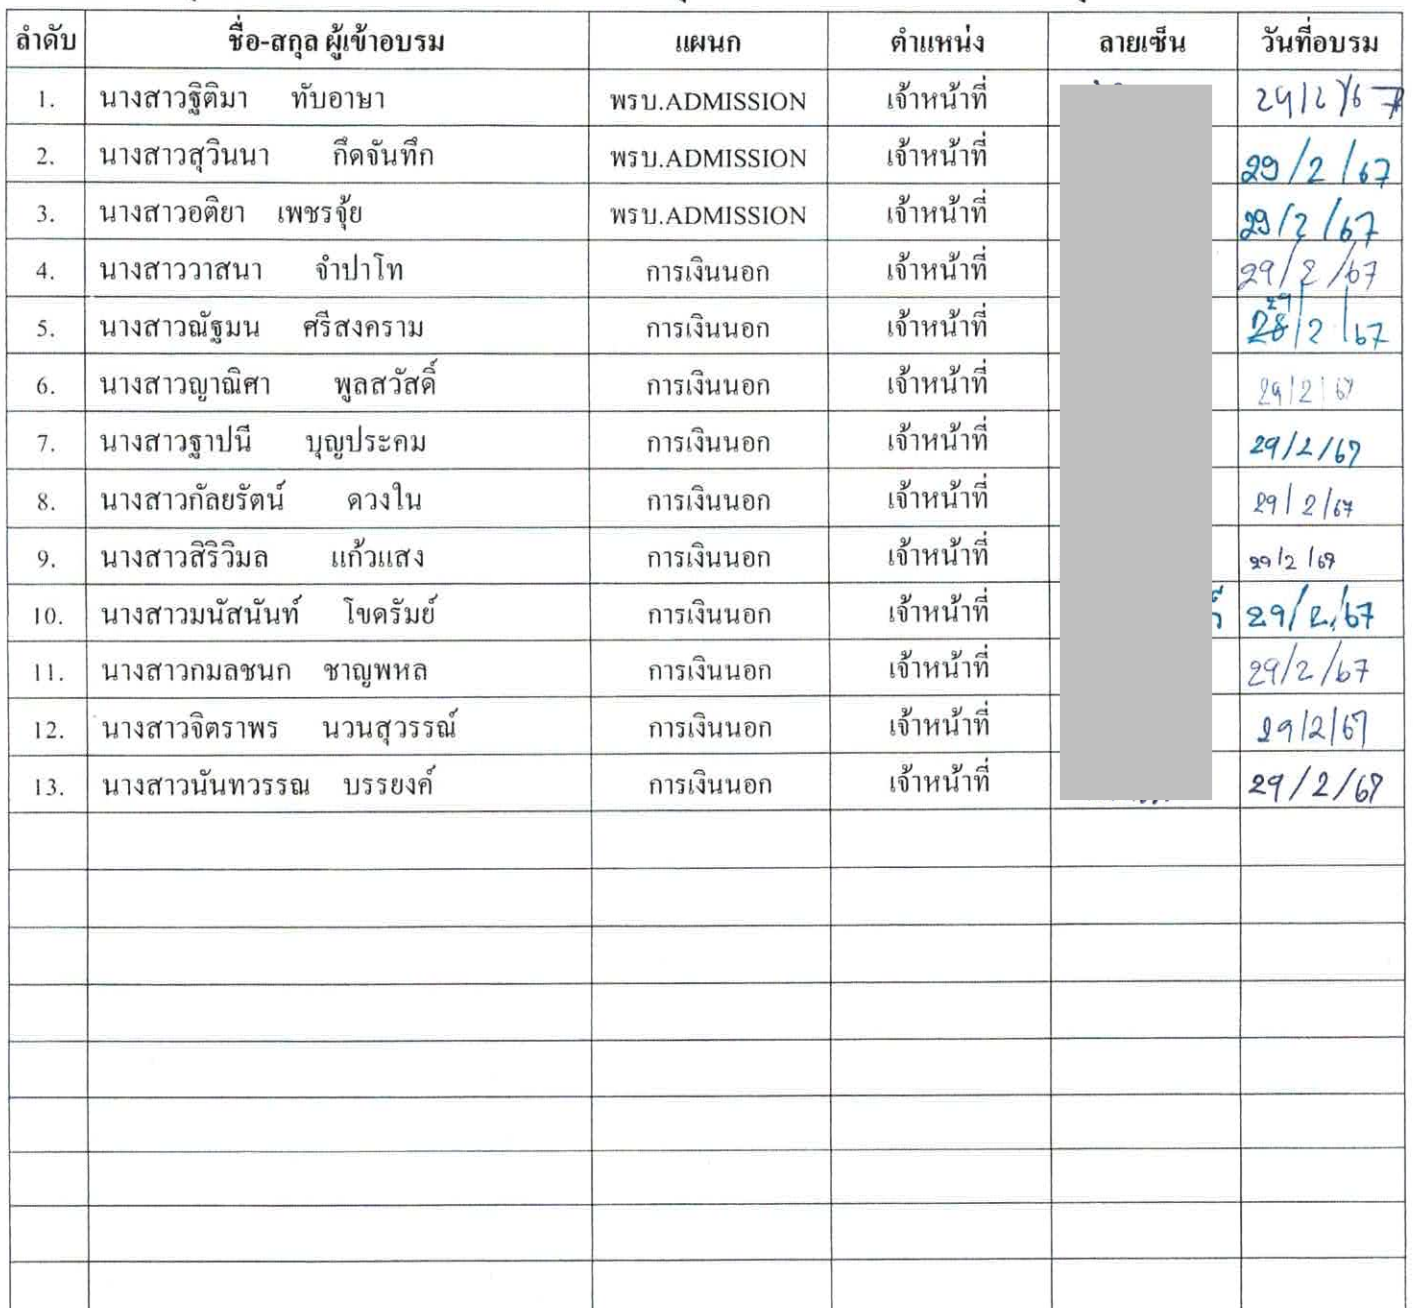 ลำดับ ชื่อ-สกุล ผู้เข้าอบรม แผนก ตำแหน่ง ลายเซ็น วันที่อบรม
1. นางสาวฐิติมา ทับอาษา พรบ.ADMISSION เจ้าหน้าที่ 29/2/67
2. นางสาวสุวินนา กึดจันทึก พรบ.ADMISSION เจ้าหน้าที่ 29/2/67
3. นางสาวอติยา เพชรจุ้ย พรบ.ADMISSION เจ้าหน้าที่ 29/2/67
4. นางสาววาสนา จำปาโท การเงินนอก เจ้าหน้าที่ 29/2/67
5. นางสาวณัฐมน ศรีสงคราม การเงินนอก เจ้าหน้าที่ 29/2/67
6. นางสาวญาณิศา พูลสวัสดิ์ การเงินนอก เจ้าหน้าที่ 29/2/67
7. นางสาวฐาปนี บุญประคม การเงินนอก เจ้าหน้าที่ 29/2/67
8. นางสาวกัลยรัตน์ ดวงใน การเงินนอก เจ้าหน้าที่ 29/2/67
9. นางสาวสิริวิมล แก้วแสง การเงินนอก เจ้าหน้าที่ 29/2/67
10. นางสาวมนัสนันท์ โขดรัมย์ การเงินนอก เจ้าหน้าที่ 29/2/67
11. นางสาวกมลชนก ชาญพหล การเงินนอก เจ้าหน้าที่ 29/2/67
12. นางสาวจิตราพร นวนสุวรรณ์ การเงินนอก เจ้าหน้าที่ 29/2/67
13. นางสาวนันทวรรณ บรรยงค์ การเงินนอก เจ้าหน้าที่ 29/2/67